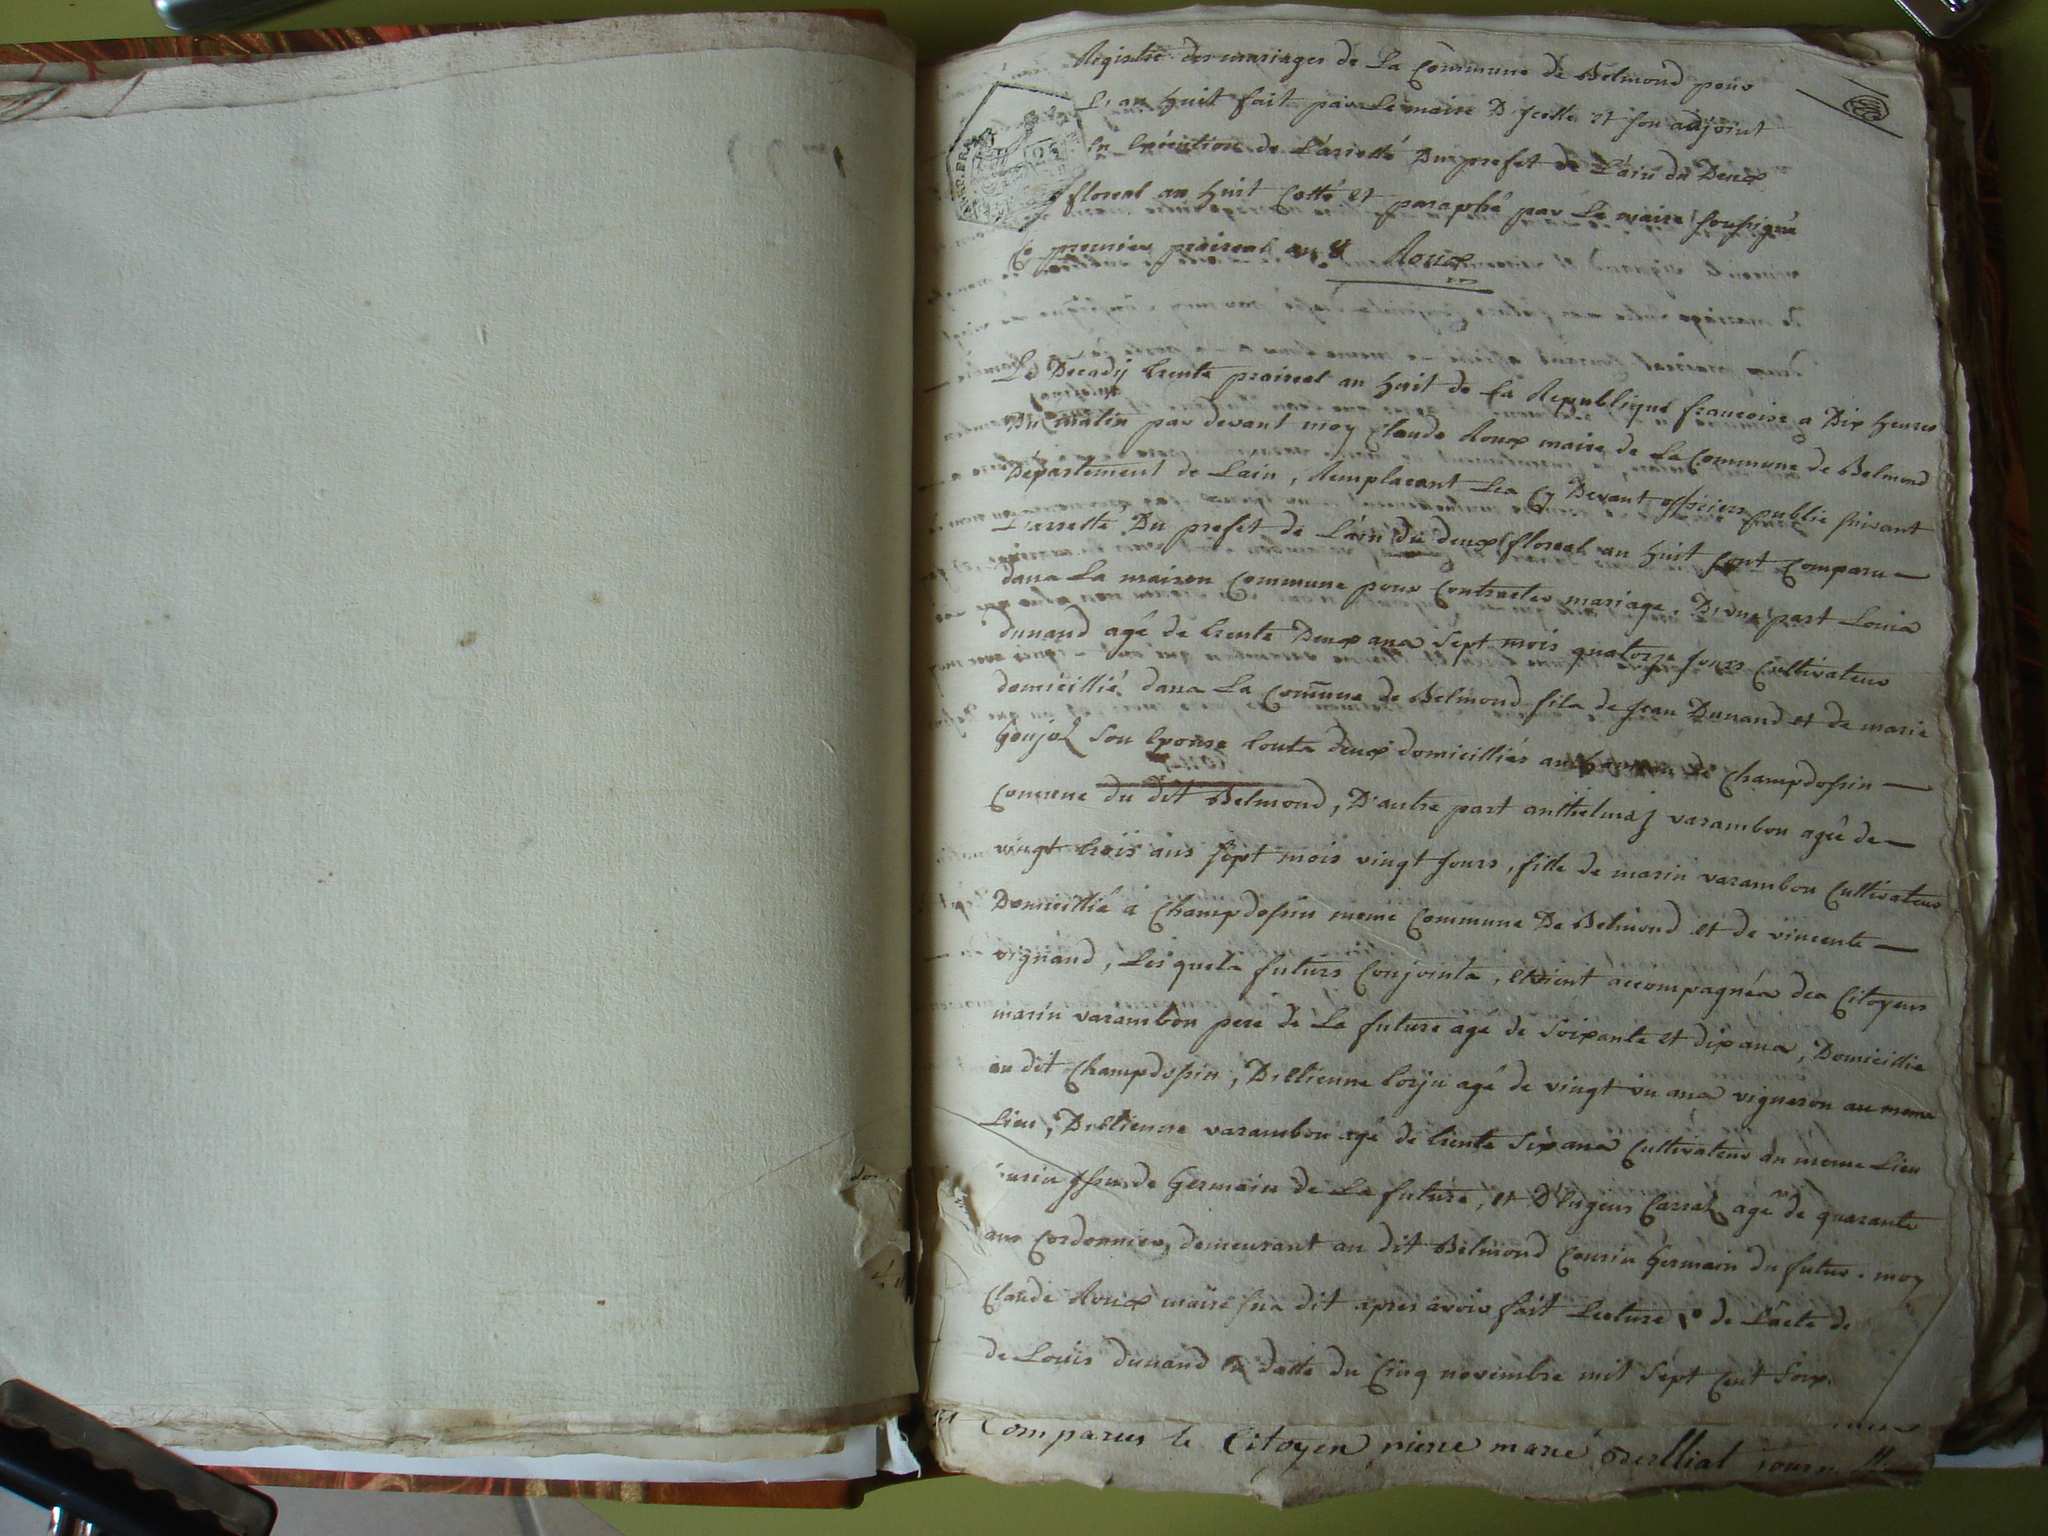 Registre des mariages de La Commune de Belmond pour
L'an huit fait par Le maire D'Icelle et son adjoint
En Execution de L'arretté Du prefet de L'ain du Deux
floreal an huit Cotté et paraphé par Le maire soussigné
Ce premier praireal an 8 Roux
Le Decadÿ trente praireal an huit de La Republique francoise a Dix heures
Du matin par devant moy Claude Roux maire de La Commune de Belmond
Departement de Lain, Remplacant Les Cy Devant officiers public suivant
L'arretté Du prefet de L'ain du deux floreal an huit sont Comparu
dans La maison Commune pour Contracter mariage, D'une part Louis
dunand agé de trente Deux ans sept mois quatorze jours Cultivateur
domicillié dans La Comune de Belmond fils de Jean Dunand et de marie
goujol Son Epouse touts deux domicilliés au hameau de Champdossin
Comune du dit Belmond, D'autre part anthelmaj varambon ageé de
vingt trois ans sept mois vingt jours, fille de marin varambon Cultivateur
Domicillié a Champdossin meme Commune De Belmond et de vincente
vignand, Lesquels futurs Conjoints, etoient accompagnés des Citoyens
marin varambon pere de La future agé de soixante et dix ans, Domicillié
au dit Champdossin, D'Etienne agé de vingt un ans vigneron au meme
Lieu, D'Etienne varambon agé de trente six ans Cultivateur au meme Lieu
Cousin germain de La future, et D'Eugene Carral agé de quarante
ans Cordonnier, demeurant au dit Belmond Cousin germain du futur. moy
Claude Roux maire sus dit apres avoir fait Lecture de L'acte de
de Louis dunand en datte du Cinq novembre mil sept Cent soix
Comparus le Citoyen pierre marie